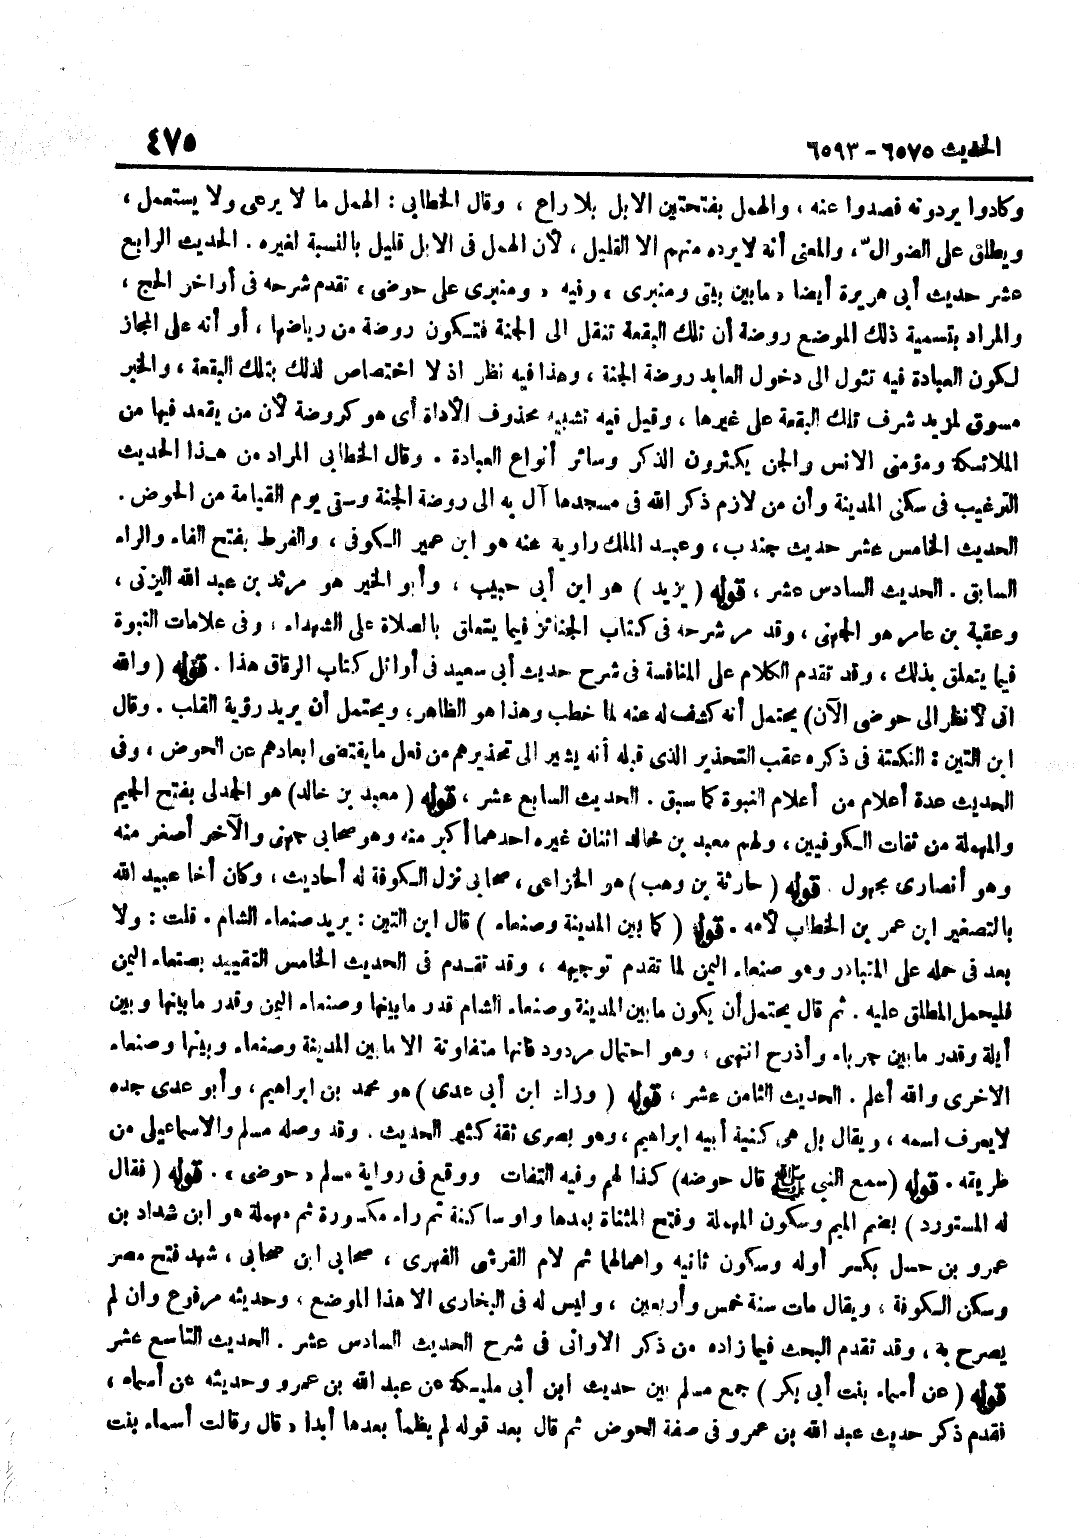 الحديث ٦٥٧٥ - ٦٥٩٣
٤٧٥
وكادوا يردونه فصدوا عنه ، والهمل بفتحتين الابل بلا راع ، وقال الخطابى : الهمل ما لا يرعى ولا يستعمل ،
ويطلق على الضوالّ ، والمعنى أنه لا يرده منهم الا القليل ، لأن الهمل فى الابل قليل بالنسبة لغيره . الحديث الرابع
عشر حديث أبى هريرة أيضا « ما بين بيتى ومنبرى ، وفيه « ومنبرى على حوضى ، تقدم شرحه فى أواخر الحج ،
والمراد بتسمية ذلك الموضع روضة أن تلك البقعة تنقل الى الجنة فتكون روضة من رياضها ، أو أنه على المجاز
لكون العبادة فيه تئول الى دخول العابد روضة الجنة ، وهذا فيه نظر اذ لا اختصاص لذلك بتلك البقعة ، والخبر
مسوق لمزيد شرف تلك البقعة على غيرها ، وقيل فيه تشبيه محذوف الأداة أى هو كروضة لأن من يقعد فيها من
الملائكة ومؤمنى الانس والجن يكثرون الذكر وسائر أنواع العبادة . وقال الخطابى المراد من هذا الحديث
الترغيب فى سكنى المدينة وأن من لازم ذكر الله فى مسجدها آل به الى روضة الجنة وسقى يوم القيامة من الحوض .
الحديث الخامس عشر حديث جندب ، وعبد الملك راويه عنه هو ابن عمير الكوفى ، والفرط بفتح الفاء والراء
السابق . الحديث السادس عشر ، قوله ( يزيد ) هو ابن أبى حبيب ، وأبو الخير هو مرثد بن عبد الله اليزنى ،
وعقبة بن عامر هو الجهنى ، وقد مر شرحه فى كتاب الجنائز فيما يتعلق بالصلاة على الشهداء ، وفى علامات النبوة
فيما يتعلق بذلك ، وقد تقدم الكلام على المنافسة فى شرح حديث أبى سعيد فى أوائل كتاب الرقاق هذا . قوله ( والله
انى لأنظر الى حوضى الآن ) يحتمل أنه كشف له عنه لما خطب وهذا هو الظاهر ، ويحتمل أن يريد رؤية القلب . وقال
ابن التين : النكتة فى ذكره عقب التحذير الذى قبله أنه يشير الى تحذيرهم من فعل ما يقتضى ابعادهم عن الحوض ، وفى
الحديث عدة أعلام من أعلام النبوة كما سبق . الحديث السابع عشر ، قوله ( معبد بن خالد ) هو الجدلى بفتح الجيم
والمهملة من ثقات الكوفيين ، ولهم معبد بن خالد اثنان غيره احدهما أكبر منه وهو صحابى جهنى والآخر أصغر منه
وهو أنصارى مجهول . قوله ( حارثة بن وهب ) هو الخزاعى ، صحابى نزل الكوفة له أحاديث ، وكان أخا عبيد الله
بالتصغير ابن عمر بن الخطاب لأمه . قوله ( كما بين المدينة وصنعاء ) قال ابن التين : يريد صنعاء الشام . قلت : ولا
بعد فى حمله على المتبادر وهو صنعاء اليمن لما تقدم توجيهه ، وقد تقدم فى الحديث الخامس التقييد بصنعاء اليمن
فليحمل المطلق عليه . ثم قال يحتمل أن يكون ما بين المدينة وصنعاء الشام قدر ما بينها وصنعاء اليمن وقدر ما بينها وبين
أيلة وقدر ما بين جرباء وأذرح انتهى ، وهو احتمال مردود فانها متفاوتة الا ما بين المدينة وصنعاء وبينها وصنعاء
الاخرى والله أعلم . الحديث الثامن عشر ، قوله ( وزاد ابن أبى عدى ) هو محمد بن ابراهيم ، وأبو عدى جده
لا يعرف اسمه ، ويقال بل هى كنية أبيه ابراهيم ، وهو بصرى ثقة كثير الحديث . وقد وصله مسلم والاسماعيلى من
طريقه . قوله ( سمع النبى ﷺ قال حوضه ) كذا لهم وفيه التفات ووقع فى رواية مسلم « حوضى » . قوله ( فقال
له المستورد ) بضم الميم وسكون المهملة وفتح المثناة بعدها واو ساكنة ثم راء مكسورة ثم مهملة هو ابن شداد بن
عمرو بن حسل بكسر أوله وسكون ثانيه واهمالها ثم لام القرشى الفهرى ، صحابى ابن صحابى ، شهد فتح مصر
وسكن الكوفة ، ويقال مات سنة خمس وأربعين ، وليس له فى البخارى الا هذا الموضع ، وحديثه مرفوع وان لم
يصرح به ، وقد تقدم البحث فيما زاده من ذكر الاوانى فى شرح الحديث السادس عشر . الحديث التاسع عشر
قوله ( عن أسماء بنت أبى بكر ) جمع مسلم بين حديث ابن أبى مليكة عن عبد الله بن عمرو وحديثه عن أسماء ،
فقدم ذكر حديث عبد الله بن عمرو فى صفة الحوض ثم قال بعد قوله لم يظمأ بعدها أبدا « قال وقالت أسماء بنت